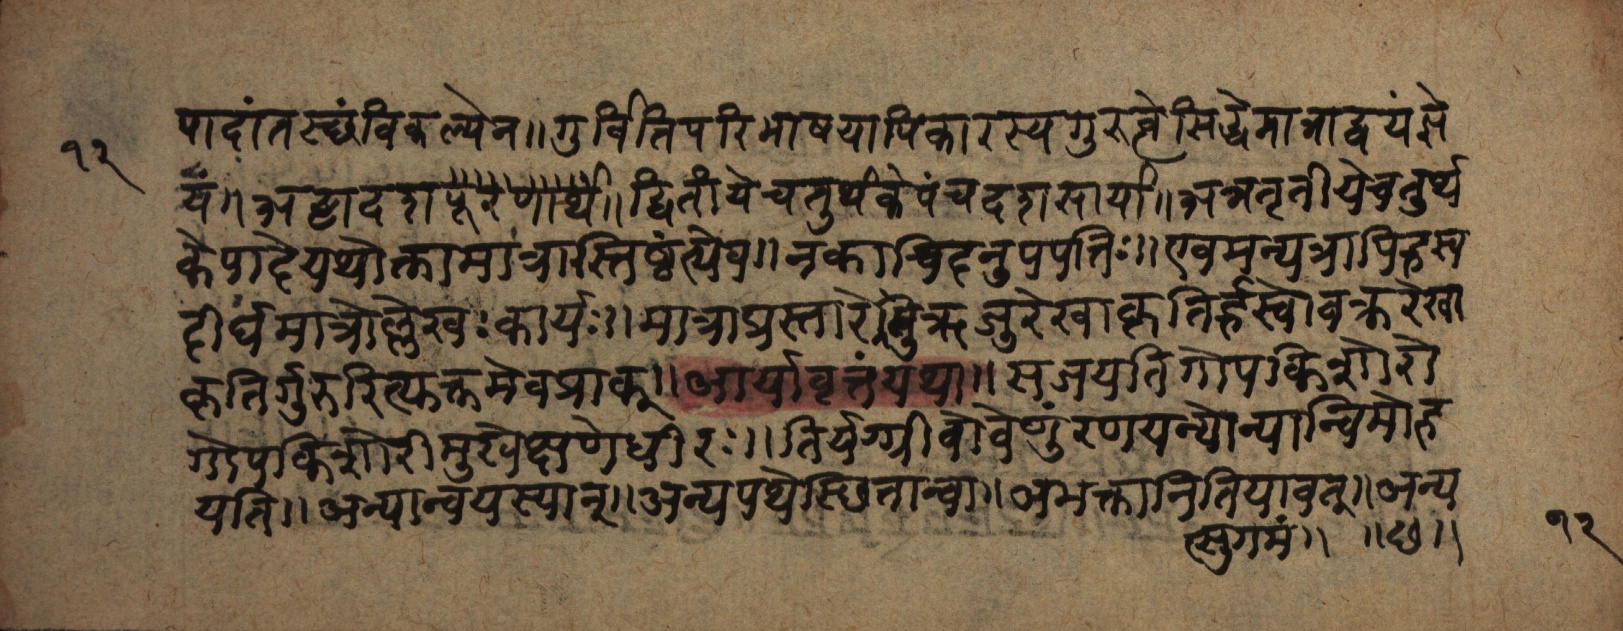 पादांतस्थंविकल्पेन॥गुर्वितिपरिभाषयापिकारस्यगुरुत्वेसिद्धेमात्राद्वयंज्ञे
१२
यं॥अष्टादशपूरणार्थं॥द्वितीयेचतुर्थकेपंचदशसार्या॥अत्रतृतीयेचतुर्थ
केपादेयथोक्तामात्रास्तिष्ठंत्येव॥नकाचिदनुपपत्तिः॥एवमन्यत्रापिह्रस्व
दीर्घमात्रोल्लेखःकार्यः॥मात्राप्रस्तारेतुऋजुरेखाकृतिर्ह्रस्वोवक्ररेखा
कृतिर्गुरुरित्युक्तमेवप्राक्॥आर्यावृत्तंयथा॥सजयतिगोपकिशोरो
गोपकिशोरीमुखेक्षणेधीरः॥तिर्यग्ग्रीवोवेणुंरणयन्योन्यान्विमोह
यति॥अन्यान्वयस्यान्॥अन्यपथेस्थितान्वा॥अभक्तानितियावत्॥अन्य
त्सुगमं॥ ॥छ॥
१२